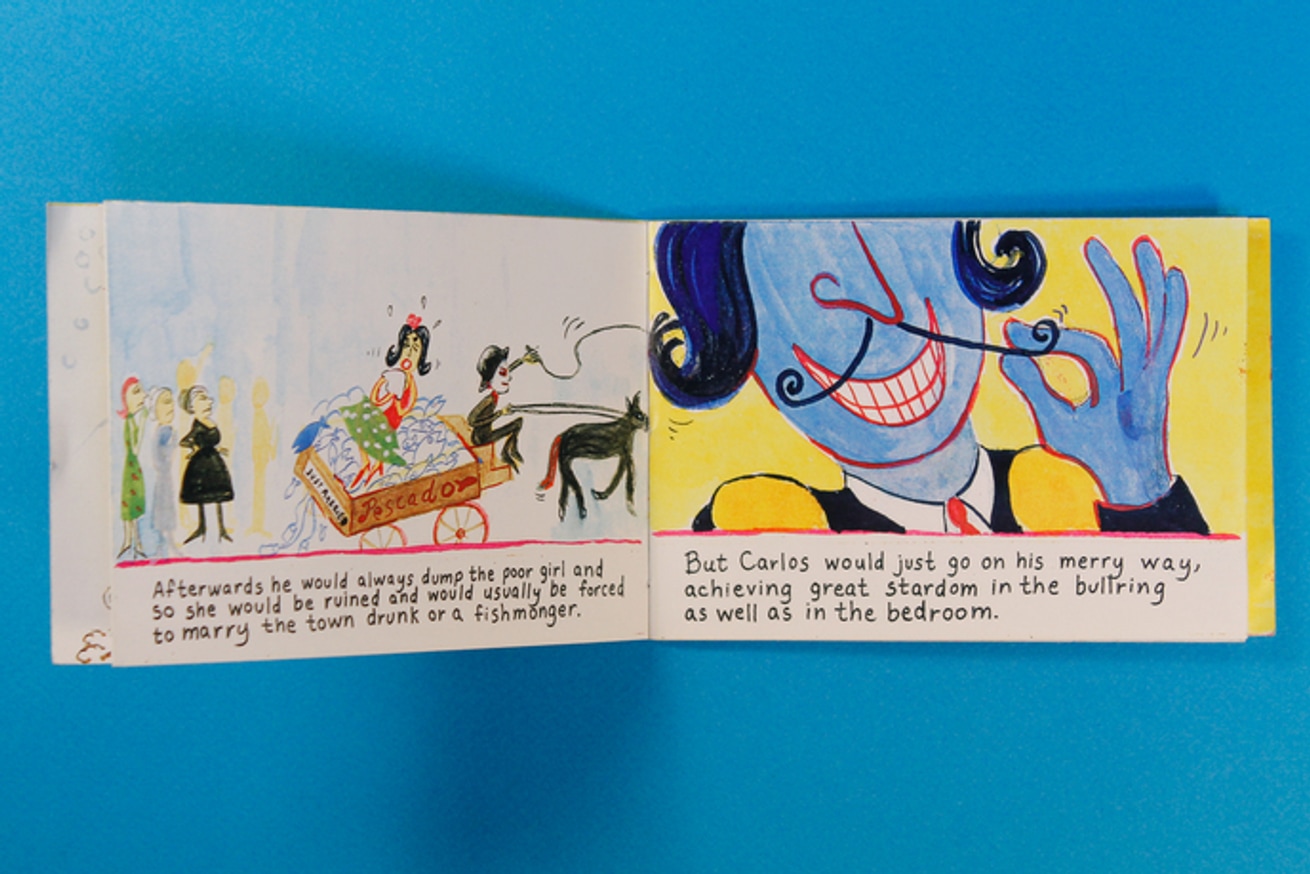 Just Married
Pescador
Afterwards he would always dump the poor girl and
so she would be ruined and would usually be forced
to marry the town drunk or a fishmonger.
But Carlos would just go on his merry way,
achieving great stardom in the bullring
as well as in the bedroom.